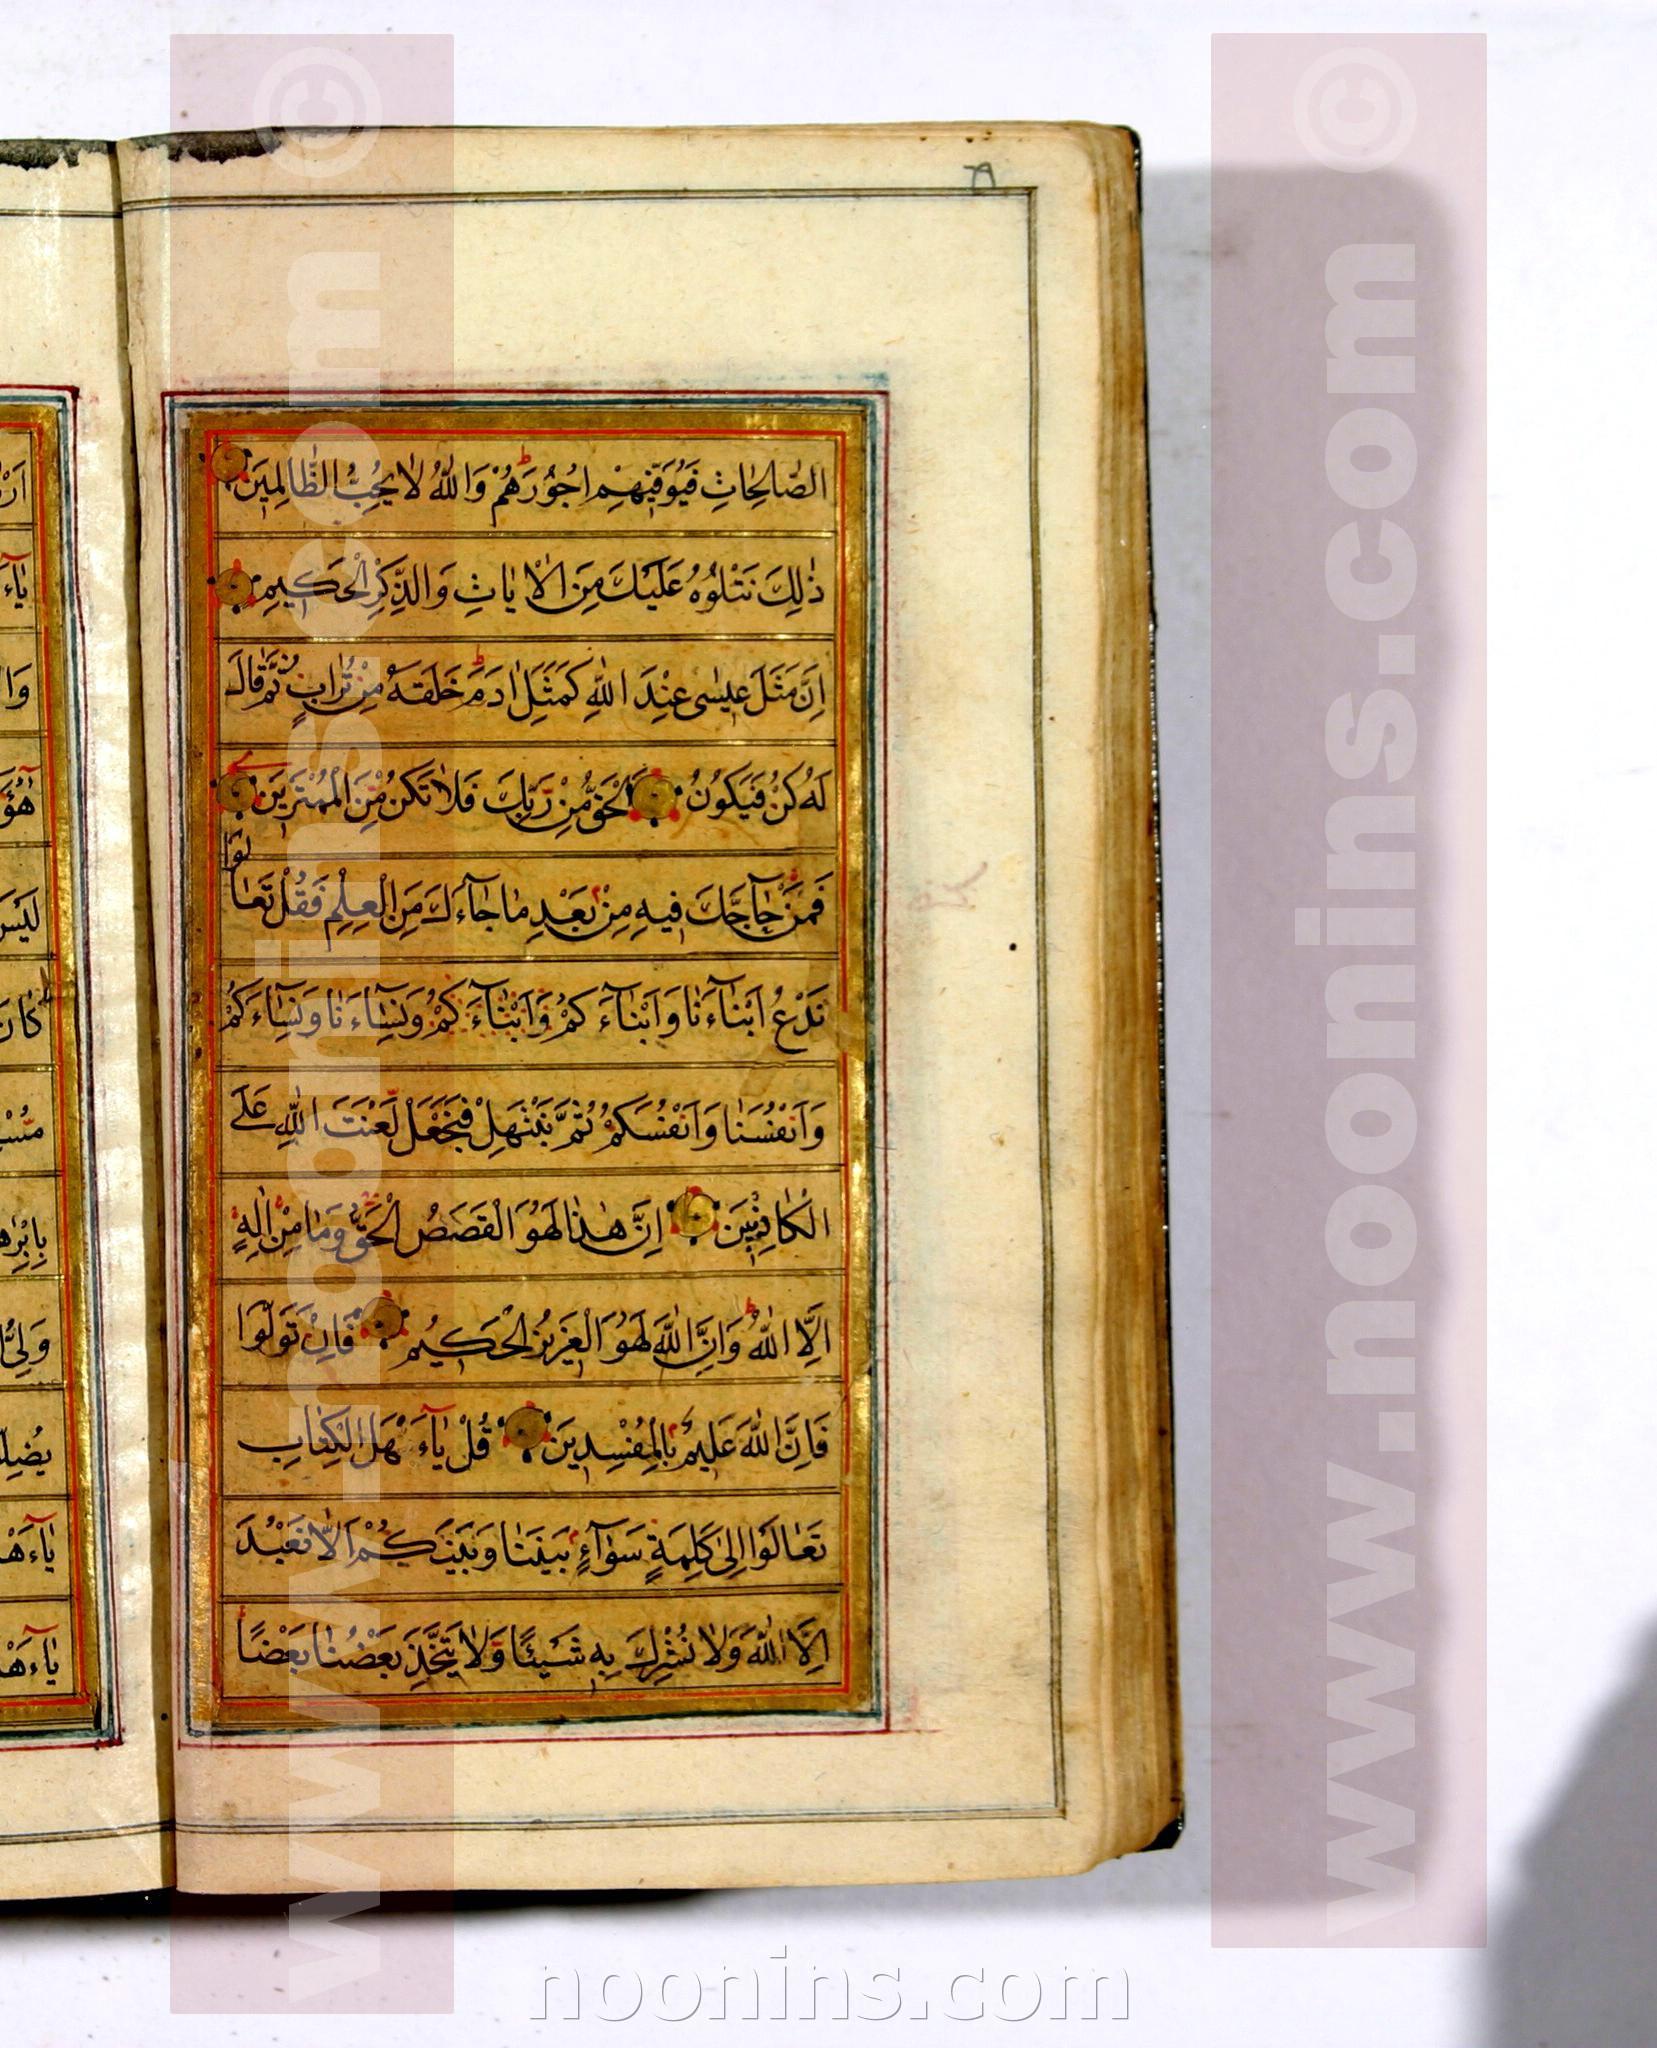 ٦٩
الصّالِحاتِ فَيُوَفّيهِمْ اُجُورَهُمْ وَاللّٰهُ لا يُحِبُّ الظّالِمينَ
ذٰلِكَ نَتْلُوهُ عَلَيْكَ مِنَ الْاٰياتِ وَالذِّكْرِ الْحَكيمِ
اِنَّ مَثَلَ عيسٰى عِنْدَ اللّٰهِ كَمَثَلِ اٰدَمَ خَلَقَهُ مِنْ تُرابٍ ثُمَّ قالَ
لَهُ كُنْ فَيَكُونُ اَلْحَقُّ مِنْ رَبِّكَ فَلا تَكُنْ مِنَ الْمُمْتَرينَ
فَمَنْ حآجَّكَ فيهِ مِنْ بَعْدِ ما جآءَكَ مِنَ الْعِلْمِ فَقُلْ تَعالَوْا
نَدْعُ اَبْنآءَنا وَاَبْنآءَكُمْ وَاَبْنآءَكُمْ وَنِسآءَنا وَنِسآءَكُمْ
وَاَنْفُسَنا وَاَنْفُسَكُمْ ثُمَّ نَبْتَهِلْ فَنَجْعَلْ لَعْنَتَ اللّٰهِ عَلَى
الْكاذِبينَ اِنَّ هٰذا لَهُوَ الْقَصَصُ الْحَقُّ وَما مِنْ اِلٰهٍ
اِلَّا اللّٰهُ وَاِنَّ اللّٰهَ لَهُوَ الْعَزيزُ الْحَكيمُ فَاِنْ تَوَلَّوْا
فَاِنَّ اللّٰهَ عَليمٌ بِالْمُفْسِدينَ قُلْ يآءَهْلَ الْكِتابِ
تَعالَوْا اِلٰى كَلِمَةٍ سَوآءٍ بَيْنَنا وَبَيْنَكُمْ اَلّا نَعْبُدَ
اِلَّا اللّٰهَ وَلا نُشْرِكَ بِهِ شَيْئًا وَلا يَتَّخِذَ بَعْضُنا بَعْضًا
www.noonins.com ©
www.noonins.com ©
noonins.com